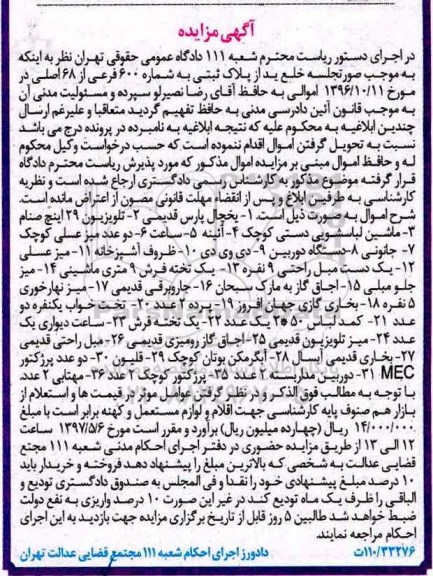 آگهی مزایده
در اجرای دستور ریاست محترم شعبه 111 دادگاه عمومی حقوقی تهران نظر به اینکه
به موجب صورتجلسه خلع ید از پلاک ثبتی به شماره 600 فرعی از 68 اصلی در
مورخ 1396/10/11 اموالی به حافظ آقای رضا نصیرلو سپرده و مسئولیت مدنی آن
به موجب قانون آئین دادرسی مدنی به حافظ تفهیم گردید متعاقبا و علیرغم ارسال
چندین ابلاغیه به محکوم علیه که نتیجه ابلاغیه به نامبرده در پرونده درج می باشد
نسبت به تحویل گرفتن اموال اقدام ننموده است که حسب درخواست وکیل محکوم
له و حافظ اموال مبنی بر مزایده اموال مذکور که مورد پذیرش ریاست محترم دادگاه
قرار گرفته موضوع مذکور به کارشناس رسمی دادگستری ارجاع شده است و نظریه
کارشناسی به طرفین ابلاغ و پس از انقضاء مهلت قانونی مصون از اعتراض مانده است.
شرح اموال به صورت ذیل است. 1- یخچال پارس قدیمی 2- تلویزیون 29 اینچ صنام
3- ماشین لباسشویی دستی کوچک 4- آئینه 5- ساعت 6- دو عدد میز عسلی کوچک
7- جانونی 8- دستگاه دوربین 9- دی وی دی 10- ظروف آشپزخانه 11- میز عسلی
12- یک دست مبل راحتی 9 نفره 13- یک تخته فرش 9 متری ماشینی 14- میز
جلو مبلی 15- اجاق گاز به مارک سبحان 16- جاروبرقی قدیمی 17- میز نهارخوری
5 نفره 18- بخاری گازی جهان افروز 19- پرده 2 عدد 20- تخت خواب یکنفره دو
عدد 21- کمد لباس 50*2 یک عدد 22- یک تخته فرش 23- ساعت دیواری یک
عدد 24- میز تلویزیون قدیمی 25- اجاق گاز رومیزی قدیمی 26- مبل راحتی قدیمی
27- بخاری قدیمی آبسال 28- آبگرمکن بوتان کوچک 29- قلیون 30- دو عدد پرژکتور
MEC 31- دوربین مداربسته 2 عدد 35- پرژکتور کوچک 2 عدد 36- مهتابی 2 عدد.
با توجه به مطالب فوق الذکر و در نظر گرفتن عوامل موثر بر قیمت ها و استعلام از
بازار هم صنوف پایه کارشناسی جهت اقلام و لوازم مستعمل و کهنه برابر است با مبلغ
14/000/000 ریال (چهارده میلیون ریال) برآورد و مقرر است مورخ 1397/5/6 ساعت
12 الی 13 از طریق مزایده حضوری در دفتر اجرای احکام مدنی شعبه 111 مجتمع
قضایی عدالت به شخصی که بالاترین مبلغ را پیشنهاد دهد فروخته و خریدار باید
10 درصد مبلغ پیشنهادی خود را نقدا و فی المجلس به صندوق دادگستری تودیع و
الباقی را ظرف یک ماه تودیع کند در غیر این صورت 10 درصد واریزی به نفع دولت
ضبط خواهد شد طالبین 5 روز قابل از تاریخ برگزاری مزایده جهت بازدید به این اجرای
احکام مراجعه نمایند.
110/33276ت دادورز اجرای احکام شعبه 111 مجتمع قضایی عدالت تهران